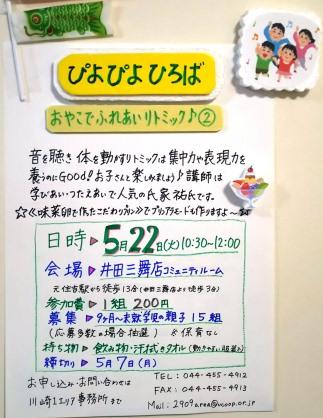 ぴよぴよひろば
おやこでふれあいリトミック♪②
音を聴き体を動かすリトミックは集中力や表現力を
養うのにGOOD!お子さんと楽しみましょう♪講師は
学びあい・つたえあいで人気の氏家祐氏です。
☆《味菜卵で作ったこだわりプリン》でプリンアラモードも作りますよ～☆
日時▶5月22日(火)10:30~12:00
会場▶井田三舞店コミュニティルーム
元住吉駅から徒歩13分(井田三舞町より徒歩3分)
参加費▶1組 200円
募集▶9ヶ月~未就学児の親子15組
(応募多数の場合抽選) ※保育なし
持ち物▶飲み物・汗拭きタオル(動きやすい服装で)
締切り▶5月7日(月)
お申し込み・お問い合わせは
川崎1エリア事務所まで
TEL:044-455-4912
FAX:044-455-4913
Mail:2909area@ucoop.or.jp